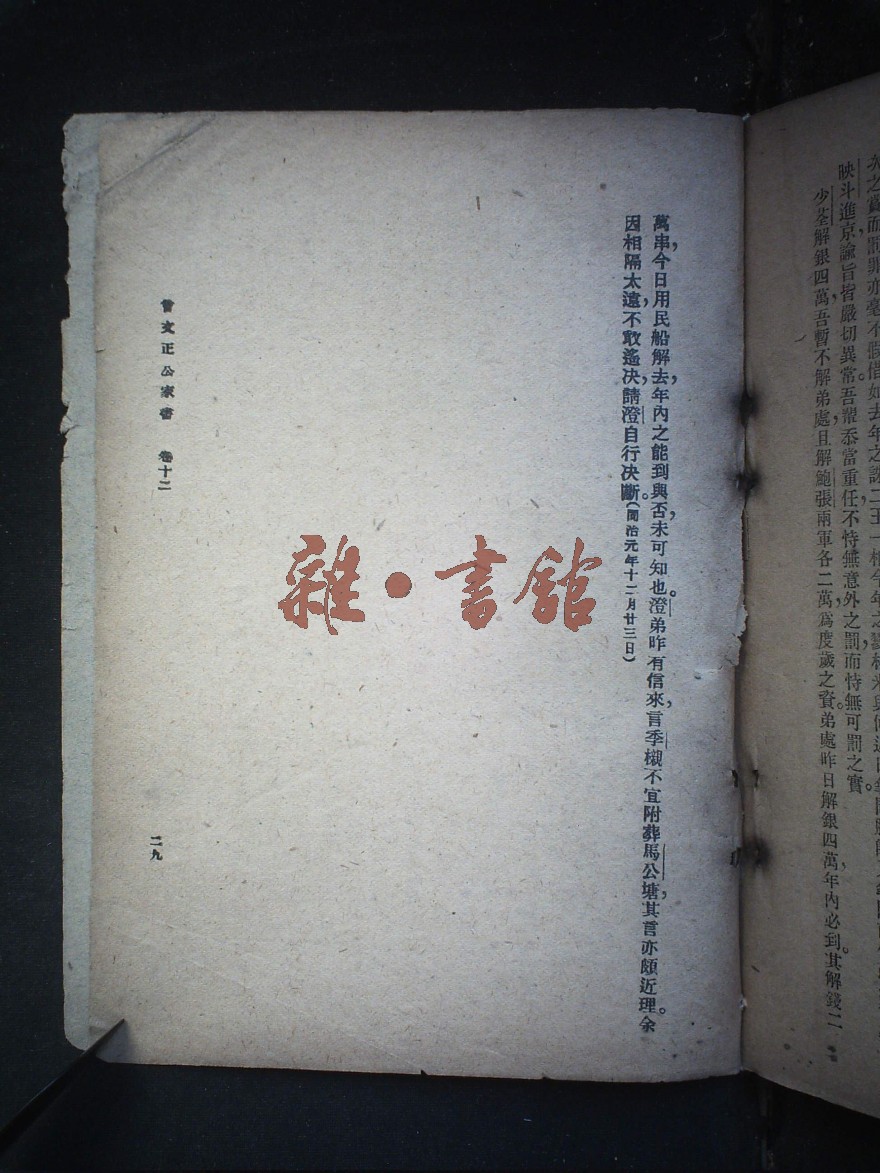 映斗進京，諭旨皆嚴切異常。吾輩忝當重任，不恃無意外之罰，而恃無可罰之實。
少荃解銀四萬，吾暫不解弟處，且解鮑張兩軍各二萬，爲度歲之資。弟處昨日解銀四萬，年內必到。其解錢二
萬串，今日用民船解去，年內之能到與否，未可知也。澄弟昨有信來，言季櫬不宜附葬馬公塘，其言亦頗近理。余
因相隔太遠，不敢遙決，請澄自行决斷。（同治元年十二月廿三日）
曾文正公家書 卷十二
二九
雜·書館